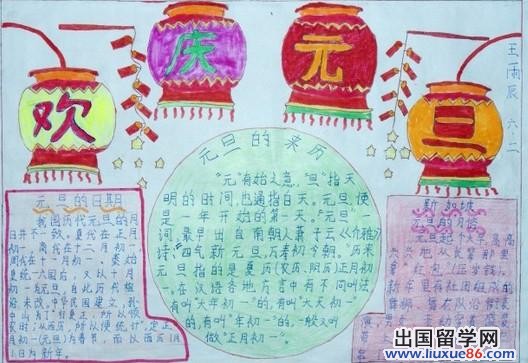 欢
庆
元
旦
王雨辰 六.二
元旦的日期
我国历代元旦的月
日并不一致。夏代在正月
初一,商代在十二月初一,
周代在十一月初一,秦始
皇统一六国后,又以十月
初一为元旦,自此历代相
沿未改。中华民国建立,孙
中山为了"行夏正,所以顺
农时;从西历,所以便统计",定正
月初一(元旦)为春节,而以西历1月
1日为新年。
元旦的来历
"元"有始之意,"旦"指天
明的时间,也通指白天。元旦,便
是一年开始的第一天。"元旦"一
词,最早出自南朝人萧子云《介雅》
诗:"四气新元旦,万寿初今朝。"历来
元旦指的是夏历(农历、阴历)正月初
一。在汉语各地方言中有不同叫法,
有叫"大年初一"的,有叫"大天初一"
的,有叫"年初一"的,一般又叫
做"正月初一"。
新加坡
元旦的习俗
元旦起个大早,高高
兴兴地从长辈那里
拿"红包"(压岁钱)。
新年里有社团组成的
出国留学网
www.liuxue86.com